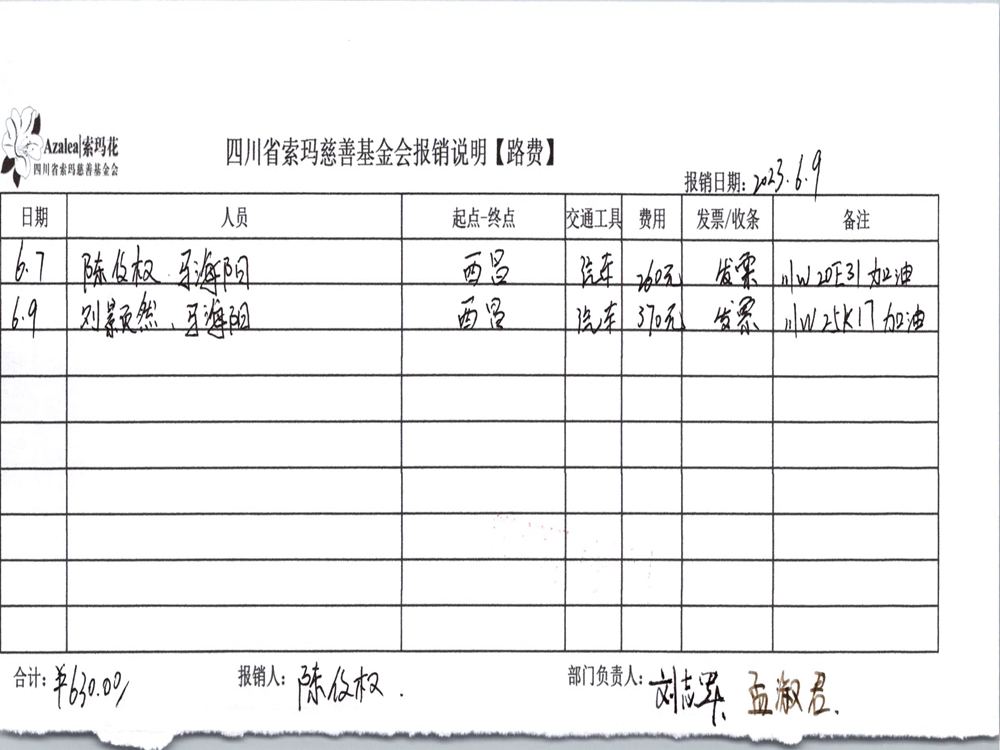 Azalea|索玛花
四川省索玛慈善基金会
四川省索玛慈善基金会报销说明【路费】
报销日期: 2023.6.9
日期 人员 起点-终点 交通工具 费用 发票/收条 备注
6.7 陈俊权、马海阳 西昌 汽车 260元 发票 川W20E31加油
6.9 刘景然、马海阳 西昌 汽车 370元 发票 川W25K17加油
合计: ¥630.00/ 报销人: 陈俊权. 部门负责人: 刘志军、孟淑君.